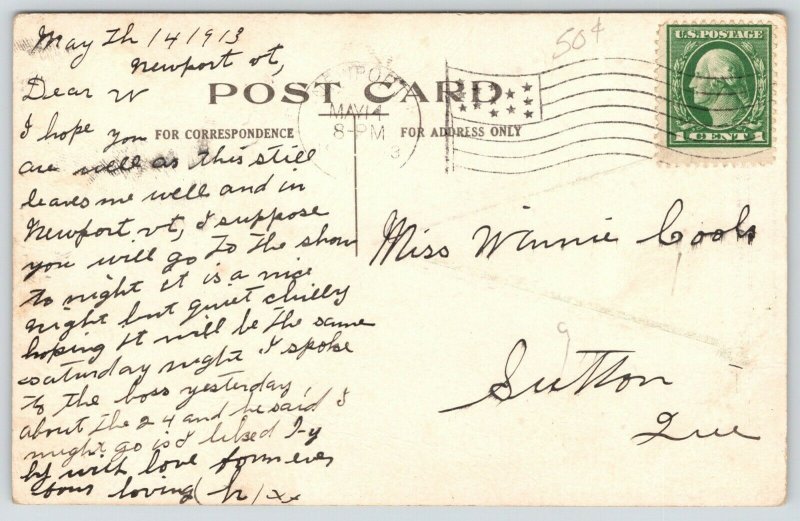 May Th 14 1913
Newport Vt,
50¢
U.S. POSTAGE
1 CENT 1
NEWPORT
MAY 14
8-PM
3
POST CARD
FOR CORRESPONDENCE
FOR ADDRESS ONLY
Dear W
I hope you
are well as this still
leaves me well and in
Newport Vt, I suppose
you will go to the show
to night it is a nice
night but quiet chilly
hoping it will be the same
saturday night I spoke
to the boss yesterday,
about the 24 and he said I
might go is I liked
by with love form ever
yours loving (h) xx
Miss Winnie Cook
Sutton
Que